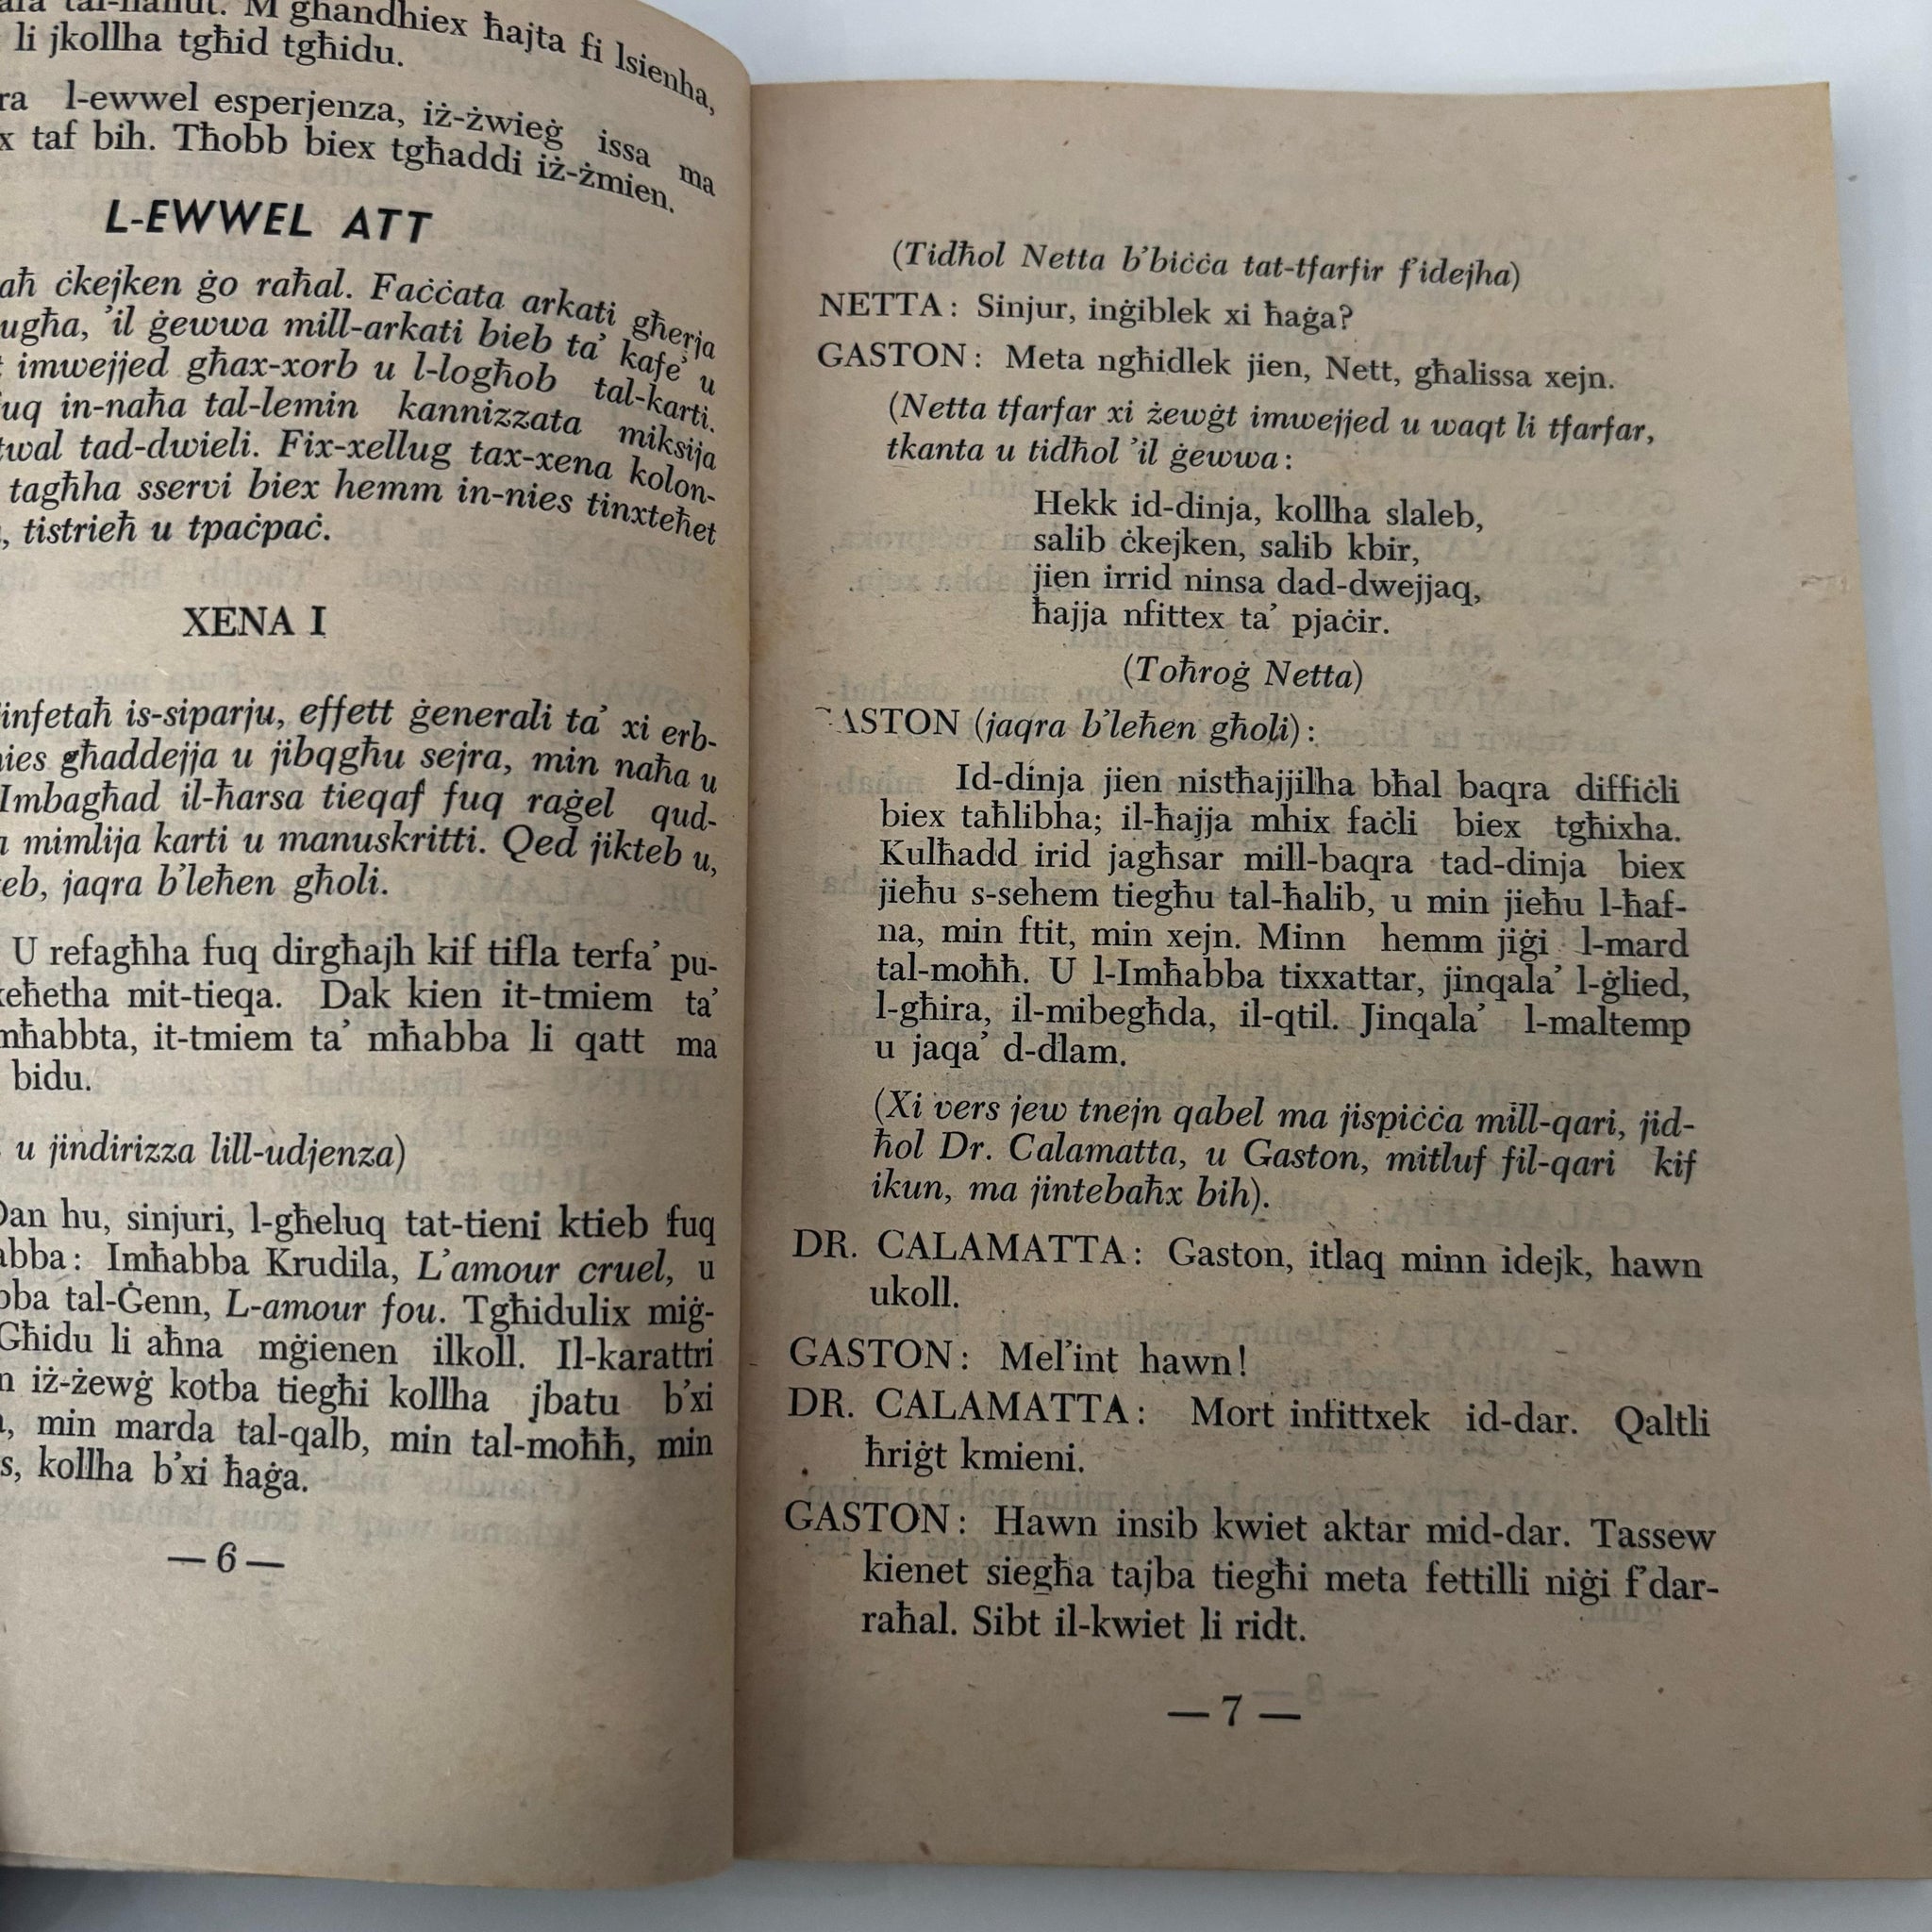 tal-ħanut. M'għandhiex ħajta fi lsienha,
li jkollha tgħid tgħidu.
l-ewwel esperjenza, iż-żwieġ issa ma
taf bih. Tħobb biex tgħaddi iż-żmien.
L-EWWEL ATT
ċkejken ġo raħal. Faċċata arkati għerja
'il ġewwa mill-arkati bieb ta' kafe' u
imwejjed għax-xorb u l-logħob tal-karti.
in-naħa tal-lemin kannizzata miksija
tad-dwieli. Fix-xellug tax-xena kolon-
tagħha sservi biex hemm in-nies tinxteħet
tistrieħ u tpaċpaċ.
XENA I
is-siparju, effett ġenerali ta' xi erb-
għaddejja u jibqgħu sejra, min naħa u
Imbagħad il-ħarsa tieqaf fuq raġel qud-
mimlija karti u manuskritti. Qed jikteb u,
jaqra b'leħen għoli.
U refagħha fuq dirgħajh kif tifla terfa' pu-
mit-tieqa. Dak kien it-tmiem ta'
it-tmiem ta' mħabba li qatt ma
bidu.
u jindirizza lill-udjenza)
Dan hu, sinjuri, l-għeluq tat-tieni ktieb fuq
Imħabba Krudila, L'amour cruel, u
tal-Ġenn, L-amour fou. Tgħidulix miġ-
Għidu li aħna mġienen ilkoll. Il-karattri
iż-żewġ kotba tiegħi kollha jbatu b'xi
min marda tal-qalb, min tal-moħħ, min
kollha b'xi ħaġa.
— 6 —
(Tidħol Netta b'biċċa tat-tfarfir f'idejha)
NETTA: Sinjur, inġiblek xi ħaġa?
GASTON: Meta ngħidlek jien, Nett, għalissa xejn.
(Netta tfarfar xi żewġt imwejjed u waqt li tfarfar,
tkanta u tidħol 'il ġewwa:
Hekk id-dinja, kollha slaleb,
salib ċkejken, salib kbir,
jien irrid ninsa dad-dwejjaq,
ħajja nfittex ta' pjaċir.
(Toħroġ Netta)
GASTON (jaqra b'leħen għoli):
Id-dinja jien nistħajjilha bħal baqra diffiċli
biex taħlibha; il-ħajja mhix faċli biex tgħixha.
Kulħadd irid jagħsar mill-baqra tad-dinja biex
jieħu s-sehem tiegħu tal-ħalib, u min jieħu l-ħaf-
na, min ftit, min xejn. Minn hemm jiġi l-mard
tal-moħħ. U l-Imħabba tixxattar, jinqala' l-ġlied,
l-għira, il-mibegħda, il-qtil. Jinqala' l-maltemp
u jaqa' d-dlam.
(Xi vers jew tnejn qabel ma jispiċċa mill-qari, jid-
ħol Dr. Calamatta, u Gaston, mitluf fil-qari kif
ikun, ma jintebaħx bih).
DR. CALAMATTA: Gaston, itlaq minn idejk, hawn
ukoll.
GASTON: Mel'int hawn!
DR. CALAMATTA: Mort infittxek id-dar. Qaltli
ħriġt kmieni.
GASTON: Hawn insib kwiet aktar mid-dar. Tassew
kienet siegħa tajba tiegħi meta fettilli niġi f'dar-
raħal. Sibt il-kwiet li ridt.
— 7 —